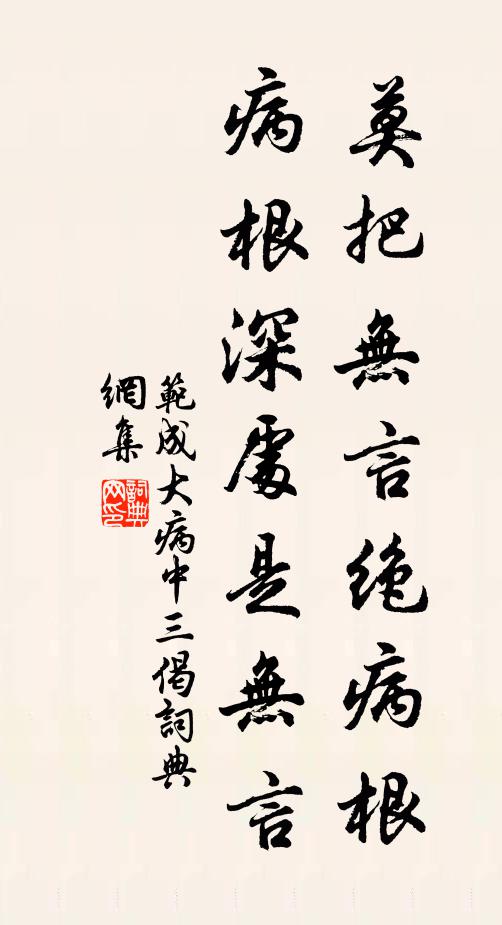 莫把無言絶病根
病根深處是無言
範成大病中三偈詞典
網集
詞典
网印